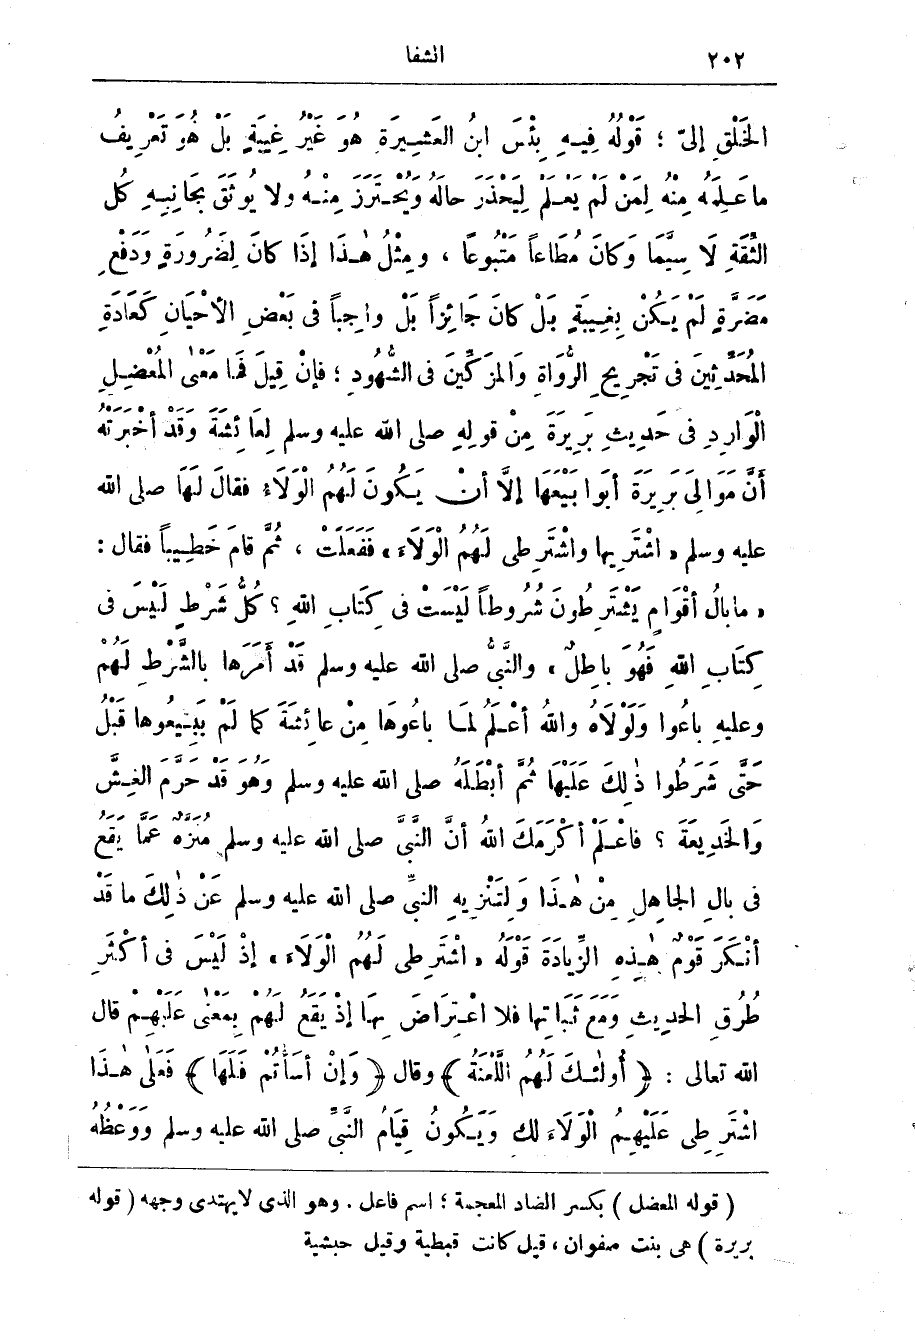 ٢٠٢ الشفا
الخَلْقِ إلىّ ؛ قَوْلُهُ فِيهِ بِئْسَ ابنُ العَشِيرَةِ هُوَ غَيْرُ غِيبَةٍ بَلْ هُوَ تَعْرِيفُ
ما عَلِمَهُ مِنْهُ لِمَنْ لَمْ يَعْلَمْ لِيَحْذَرَ حالَهُ وَيُحْتَرَزَ مِنْهُ ولا يُوثَقَ بِجَانِبِهِ كُلَّ
الثِّقَةِ لَا سِيَّمَا وَكانَ مُطَاعاً مَتْبُوعًا ، ومِثْلُ هٰذَا إذَا كانَ لِضَرُورَةٍ وَدَفْعِ
مَضَرَّةٍ لَمْ يَكُنْ بِغِيبَةٍ بَلْ كانَ جَائِزاً بَلْ واجِباً فى بَعْضِ الأَحْيَانِ كَعَادَةِ
المُحَدِّثِينَ فى تَجْرِيحِ الرُّوَاةِ وَالمزَكِّينَ فى الشُّهُودِ ؛ فإنْ قِيلَ فَمَا مَعْنٰى المُعْضِلِ
الْوَارِدِ فى حَدِيثِ بَرِيرَةَ مِنْ قولِهِ صلى الله عليه وسلم لِعَائِشَةَ وَقَدْ أخْبَرَتْهُ
أَنَّ مَوَالِىَ بَرِيرَةَ أبَوْا بَيْعَهَا إلَّا أنْ يَكُونَ لَهُمُ الْوَلَاءُ فقالَ لَهَا صلى الله
عليه وسلم « اشْتَرِيها واشْتَرِطِى لَهُمُ الْوَلَاءَ » فَفَعَلَتْ ، ثُمَّ قامَ خَطِيباً فقال :
« مابالُ أقْوَامٍ يَشْتَرِطُونَ شُرُوطاً لَيْسَتْ فى كِتَابِ اللهِ ؟ كُلُّ شَرْطٍ لَيْسَ فى
كِتَابِ اللهِ فَهُوَ باطِلٌ » والنَّبىُّ صلى الله عليه وسلم قَدْ أَمَرَها بالشَّرْطِ لَهُمْ
وعليهِ باعُوا وَلَوْلَاهُ واللهُ أعْلَمُ لَمَا باعُوهَا مِنْ عائِشَةَ كما لَمْ يَبِيعُوها قَبْلُ
حَتَّى شَرَطُوا ذٰلِكَ عَلَيْهَا ثُمَّ أبْطَلَهُ صلى الله عليه وسلم وَهُوَ قَدْ حَرَّمَ الغِشَّ
وَالخَدِيعَةَ ؟ فاعْلَمْ أكْرَمَكَ اللهُ أنَّ النَّبىَّ صلى الله عليه وسلم مُنَزَّهٌ عَمَّا يَقَعُ
فى بالِ الجاهِلِ مِنْ هٰذَا وَلِتَنْزِيهِ النبىِّ صلى الله عليه وسلم عَنْ ذٰلِكَ ما قَدْ
أنْكَرَ قَوْمٌ هٰذِهِ الزِّيادَةَ قَوْلَهُ « اشْتَرِطِى لَهُمُ الْوَلَاءَ » إذْ لَيْسَ فى أكْثَرِ
طُرُقِ الحديثِ وَمَعَ ثَبَاتِها فلا اعْتِرَاضَ بِهَا إذْ يَقَعُ لَهُمْ بِمَعْنٰى عَلَيْهِمْ قال
الله تعالى : ﴿ أُولٰئِكَ لَهُمُ اللَّعْنَةُ ﴾ وقال ﴿ وَإِنْ أسَأْتُمْ فَلَهَا ﴾ فَعَلٰى هٰذَا
اشْتَرِطِى عَلَيْهِمُ الْوَلَاءَ لكِ وَيَكُونُ قِيَامُ النَّبىِّ صلى الله عليه وسلم وَوَعْظُهُ
( قوله المعضل ) بكسر الضاد المعجمة ؛ اسم فاعل . وهو الذى لايهتدى وجهه ( قوله
بريرة ) هى بنت صفوان ، قيل كانت قبطية وقيل حبشية